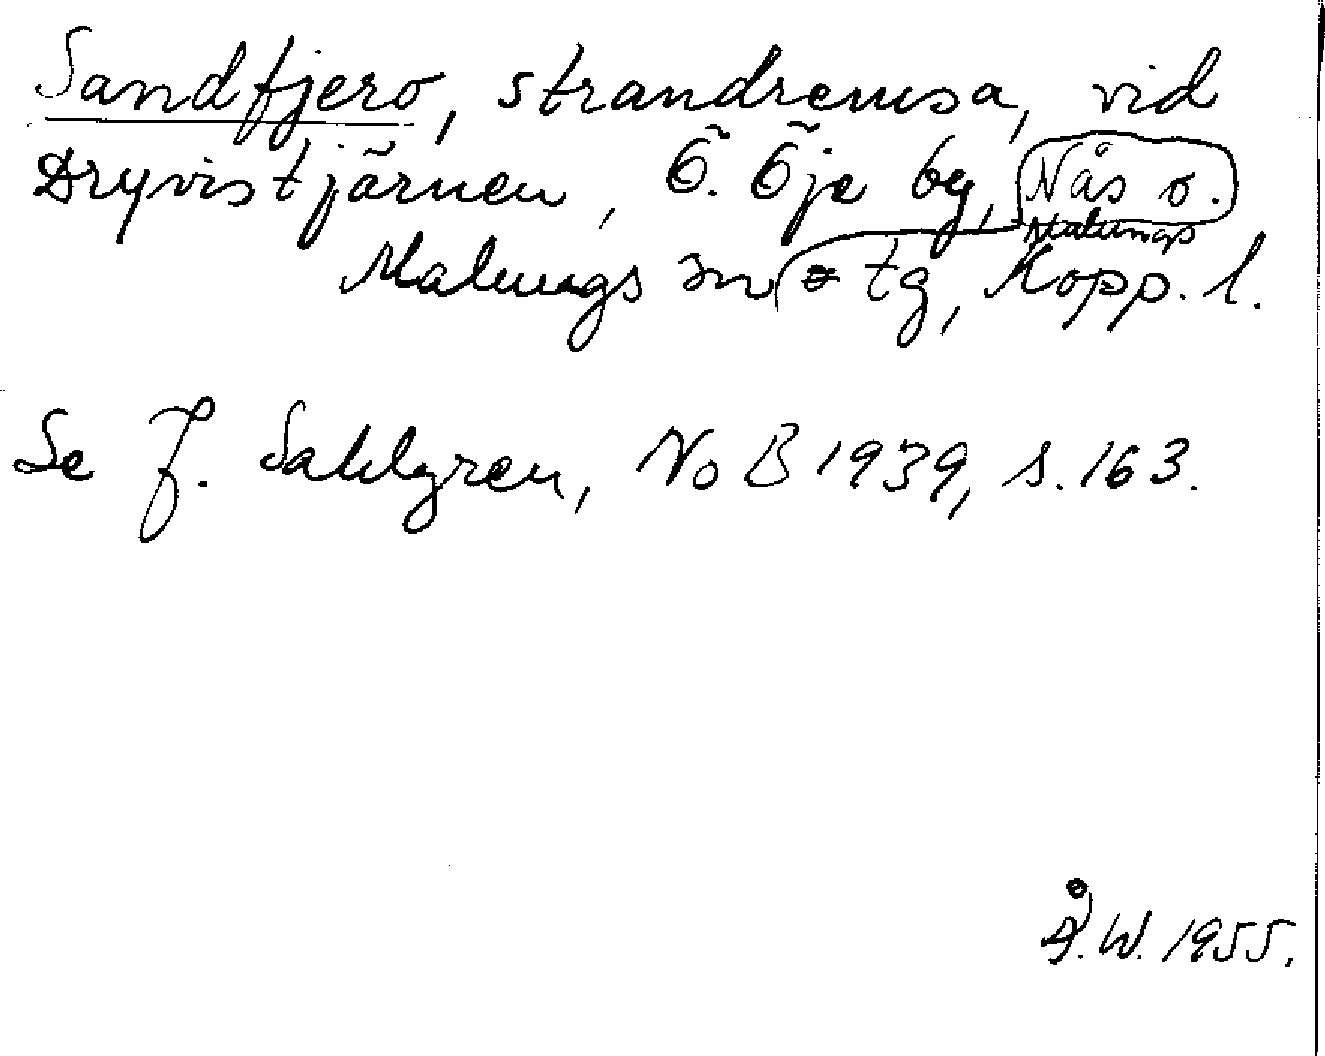 Sandfjero, strandremsa, vid
Dryvistjärnen, Ö. Öje by, Nås o.
Malungs
Malungs sn o tg, Kopp. l.
Se J. Sahlgren, NoB 1939, s. 163.
Å. W. 1955.